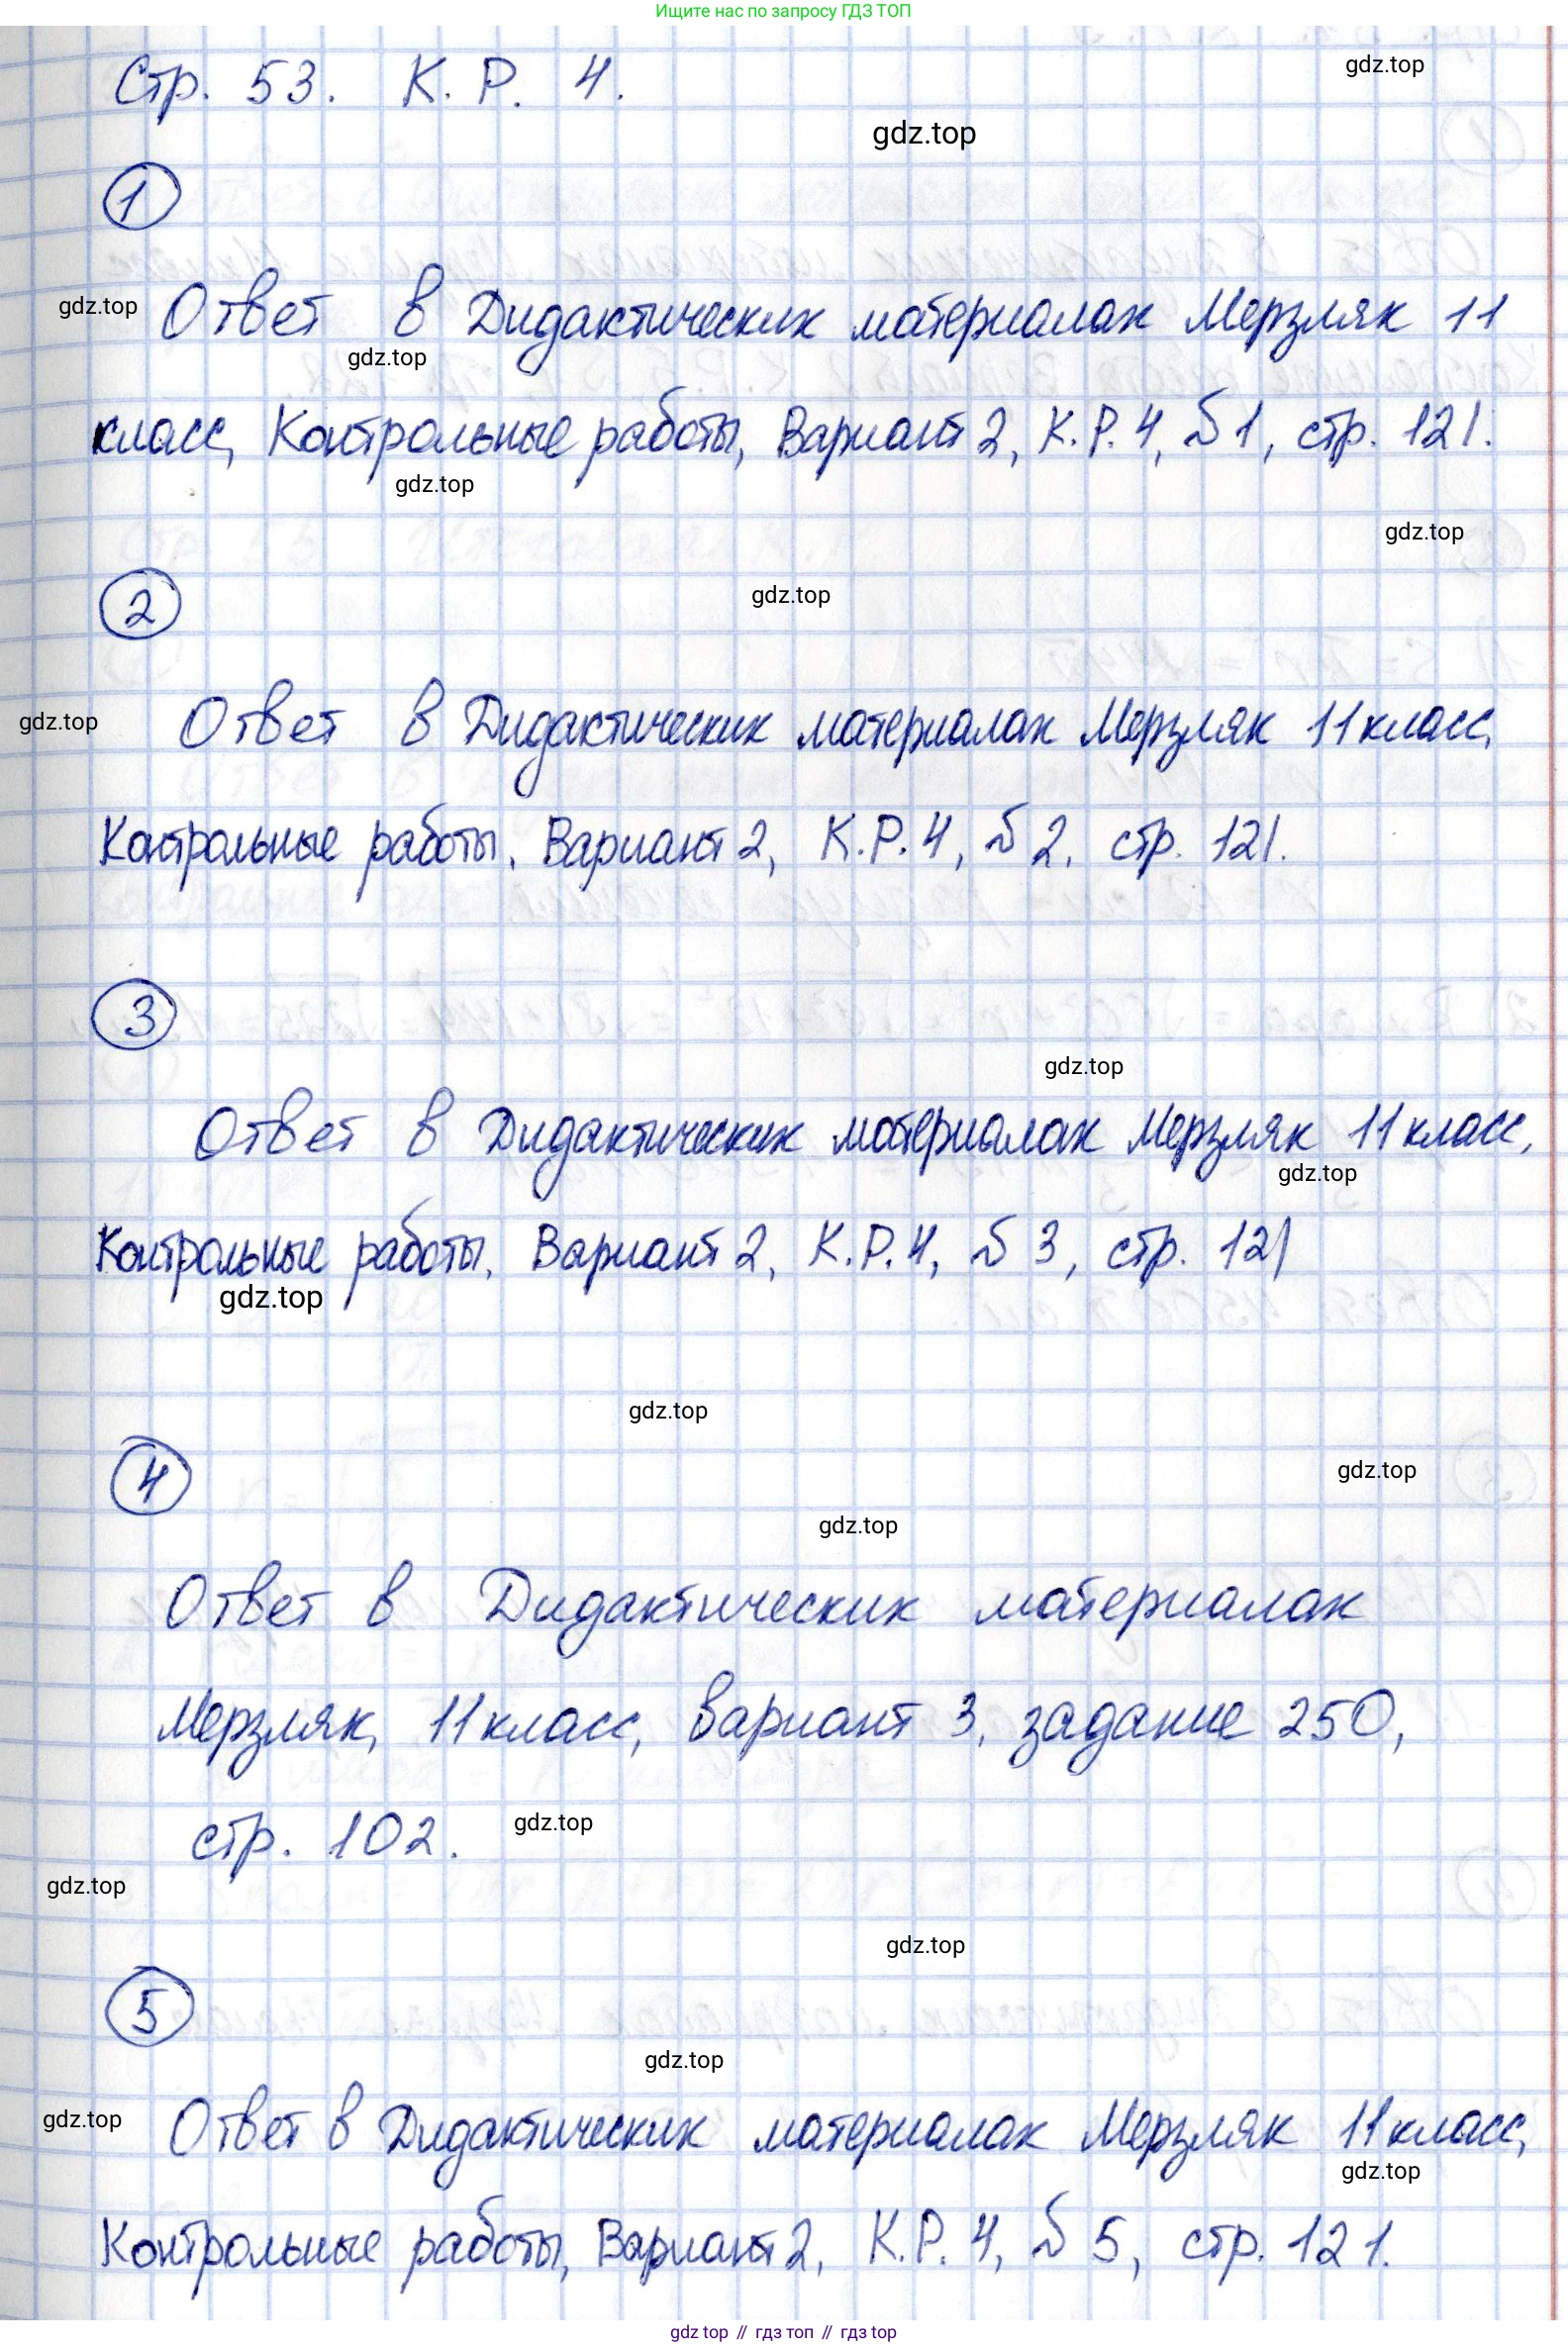 Ищите нас по запросу ГДЗ ТОП
Стр. 53. К. Р. 4.
gdz.top
gdz.top
1
gdz.top
Ответ в Дидактических материалах Мерзляк 11
gdz.top
класс, Контрольные работы, Вариант 2, К.Р. 4, № 1, стр. 121.
gdz.top
gdz.top
2
gdz.top
gdz.top
Ответ в Дидактических материалах Мерзляк 11 класс,
Контрольные работы, Вариант 2, К.Р. 4, № 2, стр. 121.
3
gdz.top
Ответ в Дидактических материалах Мерзляк 11 класс,
gdz.top
Контрольные работы, Вариант 2, К.Р. 4, № 3, стр. 121
gdz.top
gdz.top
4
gdz.top
gdz.top
Ответ в Дидактических материалах
Мерзляк, 11 класс, вариант 3, задание 250,
стр. 102.
gdz.top
gdz.top
gdz.top
5
gdz.top
gdz.top
Ответ в Дидактических материалах Мерзляк 11 класс,
gdz.top
Контрольные работы, Вариант 2, К.Р. 4, № 5, стр. 121.
gdz top // гдз топ // gdz top